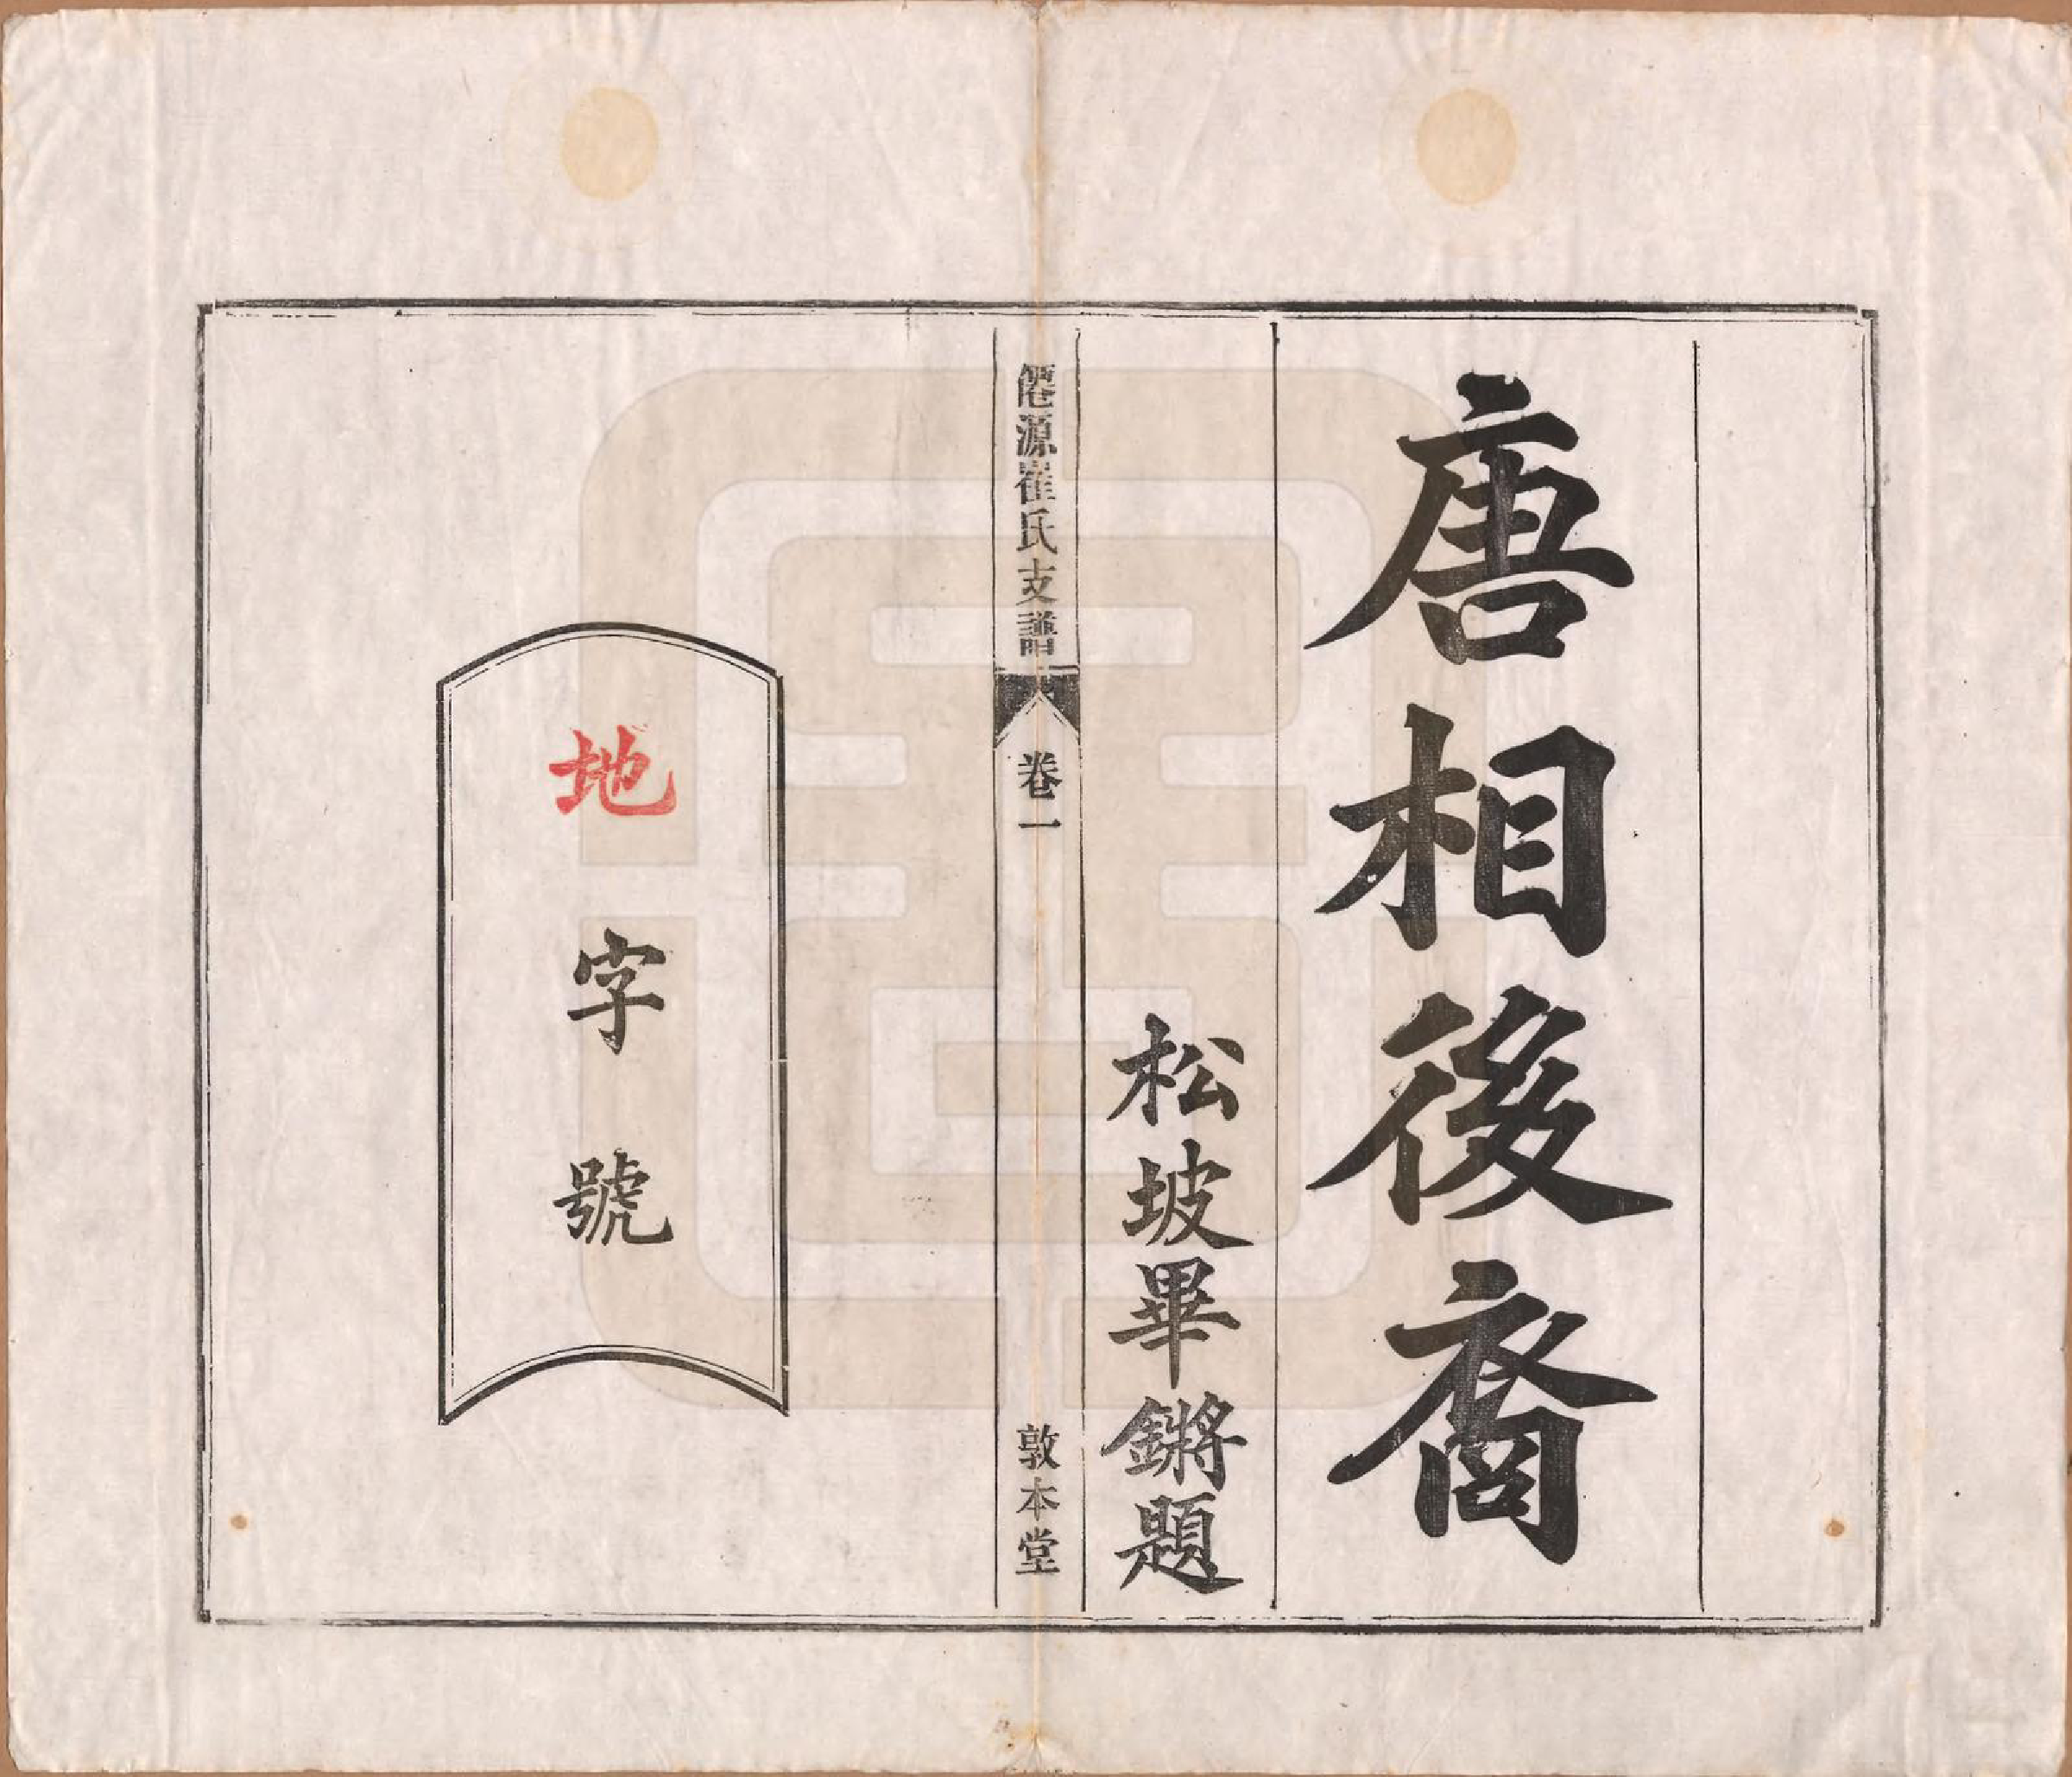 唐相後裔
松坡畢鏘題
僊源崔氏支譜
卷一
敦本堂
地字號